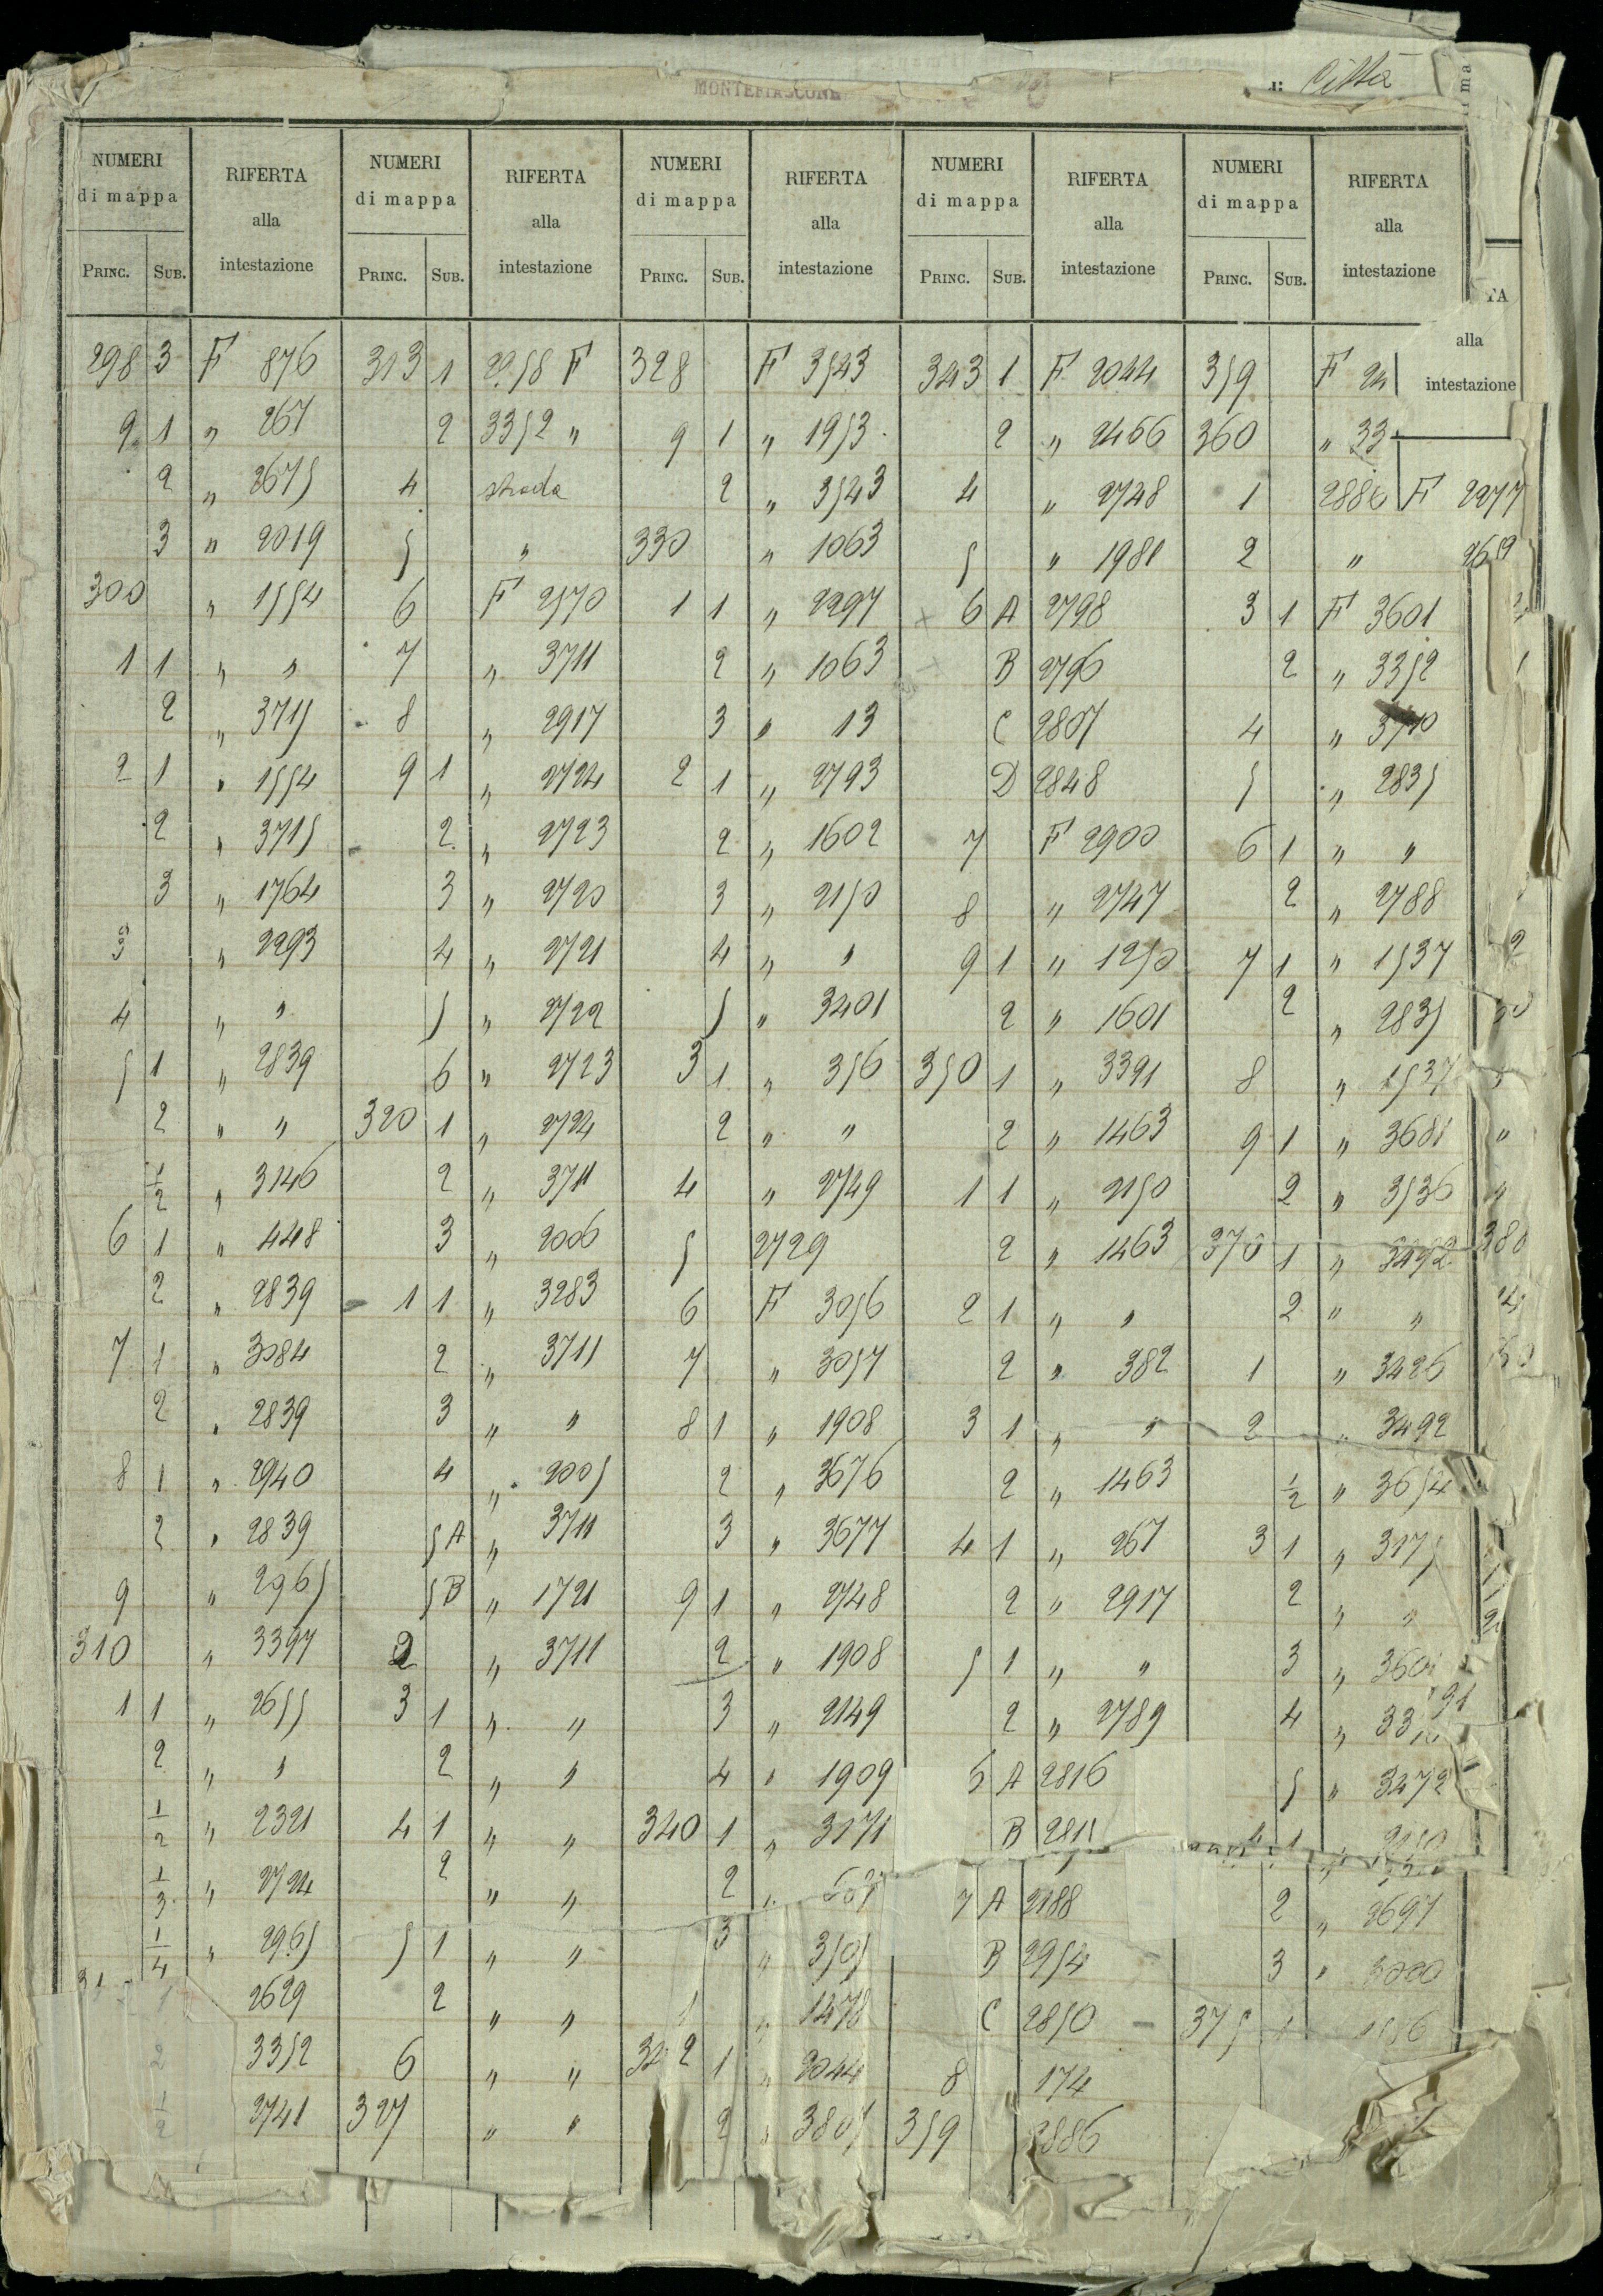 MONTEFIASCONE
di Città
NUMERI di mappa RIFERTA alla intestazione NUMERI di mappa RIFERTA alla intestazione NUMERI di mappa RIFERTA alla intestazione NUMERI di mappa RIFERTA alla intestazione NUMERI di mappa RIFERTA alla intestazione
PRINC. SUB. PRINC. SUB. PRINC. SUB. PRINC. SUB. PRINC. SUB.
alla
intestazione
298 3 F 876 313 1 2958 F 328 F 3543 343 1 F 2044 359 F 24
9 1 " 267 2 3352 " 9 1 " 1953 2 " 2466 360 " 33
2 " 2675 4 strada 2 " 3543 4 " 2748 1 2886 F 2277
3 " 2019 5 " 330 " 1063 5 " 1981 2 " 2659
300 " 1554 6 F 2570 1 1 " 2297 × 6 A 2798 3 1 F 3601
1 1 " " 7 " 3711 2 " 1063 B 2796 2 " 3352
2 " 3715 8 " 2917 3 " 13 C 2807 4 " 3710
2 1 " 1554 9 1 " 2724 2 1 " 2793 D 2848 5 " 2835
2 " 3715 2 " 2723 2 " 1602 7 F 2900 6 1 " "
3 " 1764 3 " 2720 3 " 2150 8 " 2747 2 " 2788
3 " 2293 4 " 2721 4 " " 9 1 " 1250 7 1 " 1537
4 " " 5 " 2722 5 " 3401 2 " 1601 2 " 2835
5 1 " 2839 6 " 2723 3 1 " 356 350 1 " 3391 8 " 1537
2 " " 320 1 " 2724 2 " " 2 " 1463 9 1 " 3681 "
1/2 " 3146 2 " 3711 4 " 2749 1 1 " 2150 2 " 3536 "
6 1 " 448 3 " 2006 5 2729 2 " 1463 370 1 " 3492 380
2 " 2839 1 1 " 3283 6 F 3056 2 1 " " 2 " "
7 1 " 3084 2 " 3711 7 " 3057 2 " 382 1 " 3426
2 " 2839 3 " " 8 1 " 1908 3 1 " " 2 " 3492
8 1 " 2940 4 " 2005 2 " 3676 2 " 1463 1/2 " 3654
2 " 2839 5 A " 3711 3 " 3677 4 1 " 267 3 1 " 3175
9 " 2965 5 B " 1721 9 1 " 2748 2 " 2917 2 " "
310 " 3397 2 " 3711 2 " 1908 5 1 " " 3 " 360
1 1 " 2655 3 1 " " 3 " 2149 2 " 2789 4 " 33
2 " " 2 " " 4 " 1909 6 A 2816 5 " 3472
1/2 " 2321 4 1 " " 340 1 " 3171 B 2811 4 1 " 2150
1/3 " 2724 2 " " 2 " 7 A 2188 2 " 2697
1/4 " 2965 5 1 " " 3 " 3505 B 2954 3 "
1 2629 2 " " 1 " 1478 C 2850 375 1
2 3352 6 " " 342 1 " 2044 8 " 174
1/2 2741 327 " " 2 " 3805 359 2886